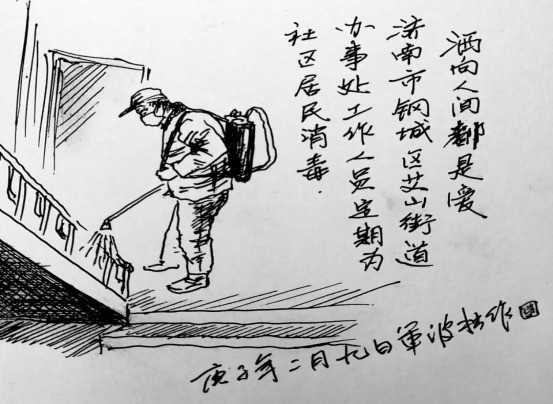 洒向人间都是爱
济南市钢城区艾山街道
办事处工作人员定期为
社区居民消毒.
庚子年二月九日军波作